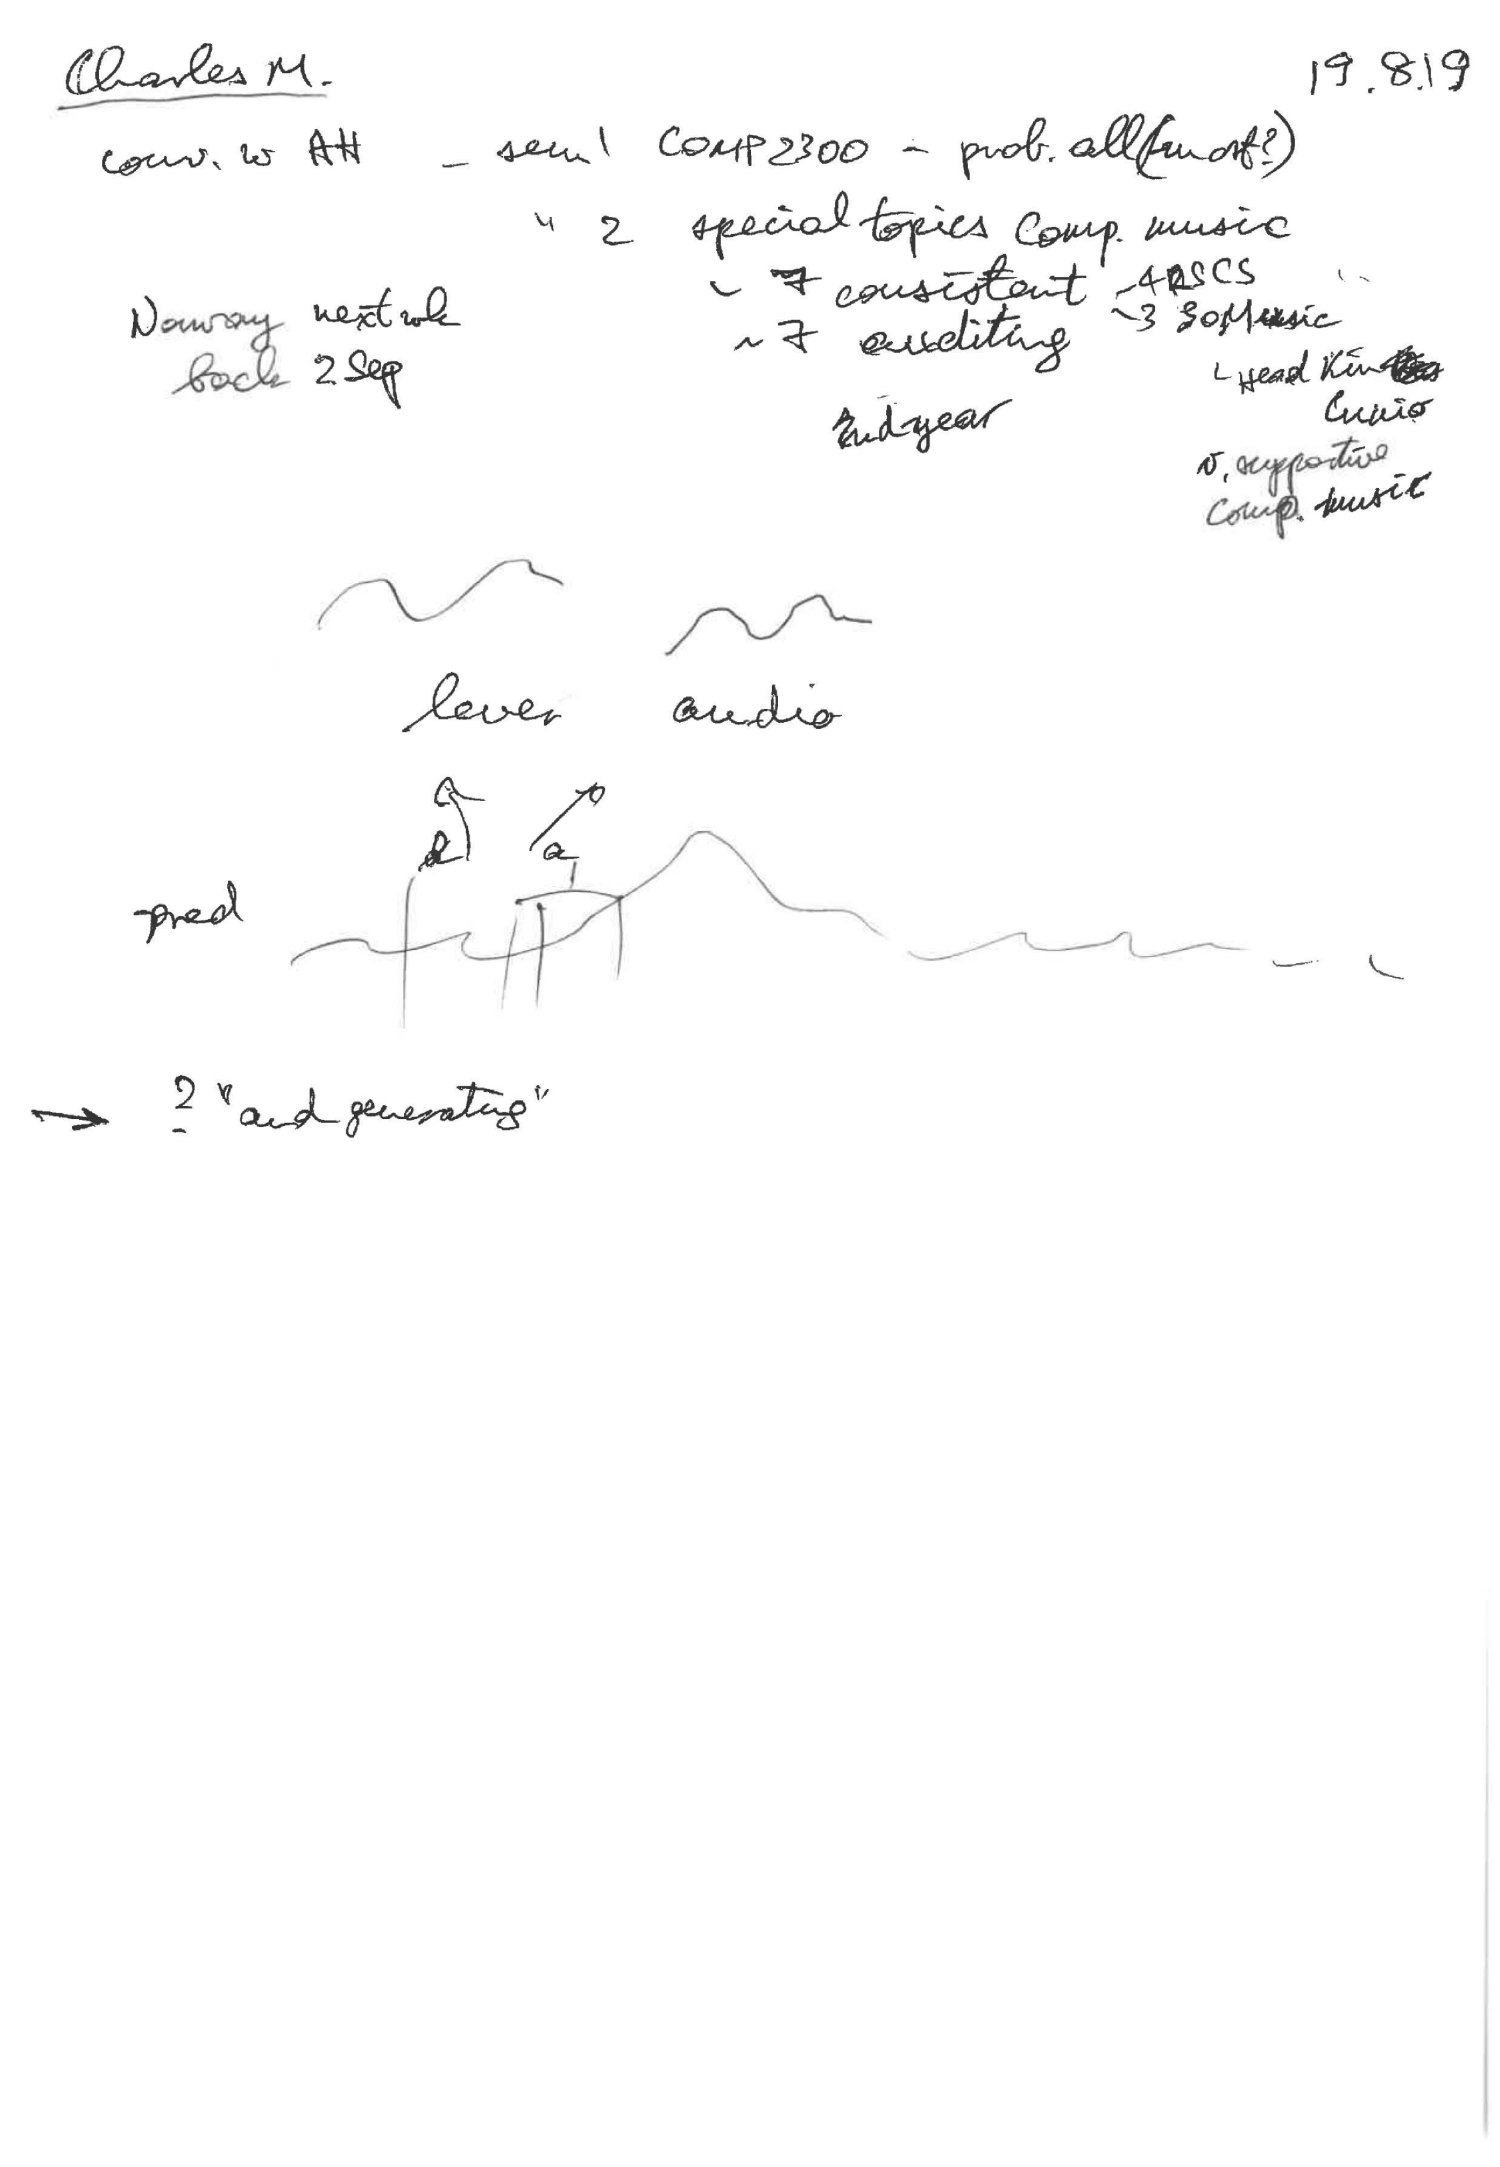 Charles M.
19.8.19
conv. w AH – sem 1 COMP2300 – prob. all (most?)
" 2 special topics Comp. music
~ 7 consistent ~4 RSCS "
~ 7 auditing ~3 SoMusic
Norway next wk
back 2 Sep
Head Kim
Cunio
2nd year
v. supportive
Comp. music
lever audio
l a
pred
→ ? "and generating"